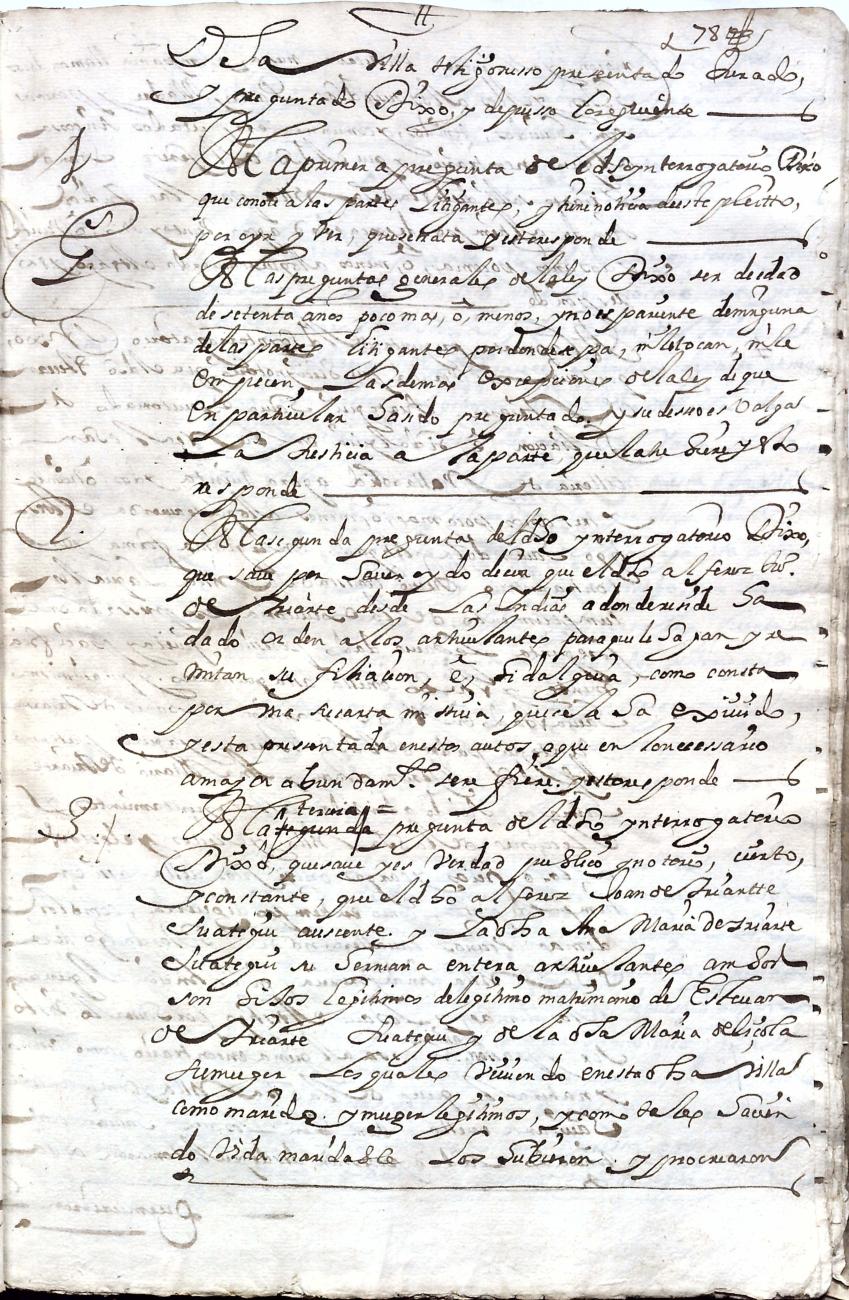 11
78
Dha Villa testigo nusso presentado Jurado,
y preguntado Dixo, y depusso lo seguiente
1 A la primera pregunta del dho ynterrogatorio Dixo
que conoce a las partes litigantes, y tiene noticia deeste pleitto,
por oyr y ver, que se trata y esto responde
G A las preguntas generales de la ley Dixo ser de edad
de setenta años poco mas, o, menos, y no es pariente de ninguna
de las partes litigantes por donde sepa, ni le tocan, ni le
empecen las demas excepciones de la ley de que
en particular ha sido preguntado, y su desseo es Valga
La Justicia a la parte, que la tubiere y esto
responde
2 A la segunda pregunta del dho ynterrogatorio Dixo,
que save por haver oydo decir que el dho alferez
de Yriarte desde Las Indias a donde reside ha
dado orden a los articulantes para que le hagan y re
mitan su filiacion, e, hidalguia, como consta
por una su carta missiva, que se la ha exivido,
y esta presentada en estos autos, a que en lo necessario
a mayor abundamto. se refiere. y esto responde
tercera =
3 A la segunda pregunta del dho ynterrogatorio
Dixo, que save y es Verdad publico y notorio, cierto,
y constante, que el dho alferez Joan de Yriartte
Suategui auscente. y La dha Ana Maria de Yriarte
Suategui su hermana entera articulantes ambos
son hijos legitimos de legitimo matrimonio de Estevan
de Yriarte Suategui y de la dha Maria de
su muger Los quales Viviendo en esta dha Villa
como marido. y muger legitimos, y como tales havien
do Vida maridable Los hubieron. y procrearon